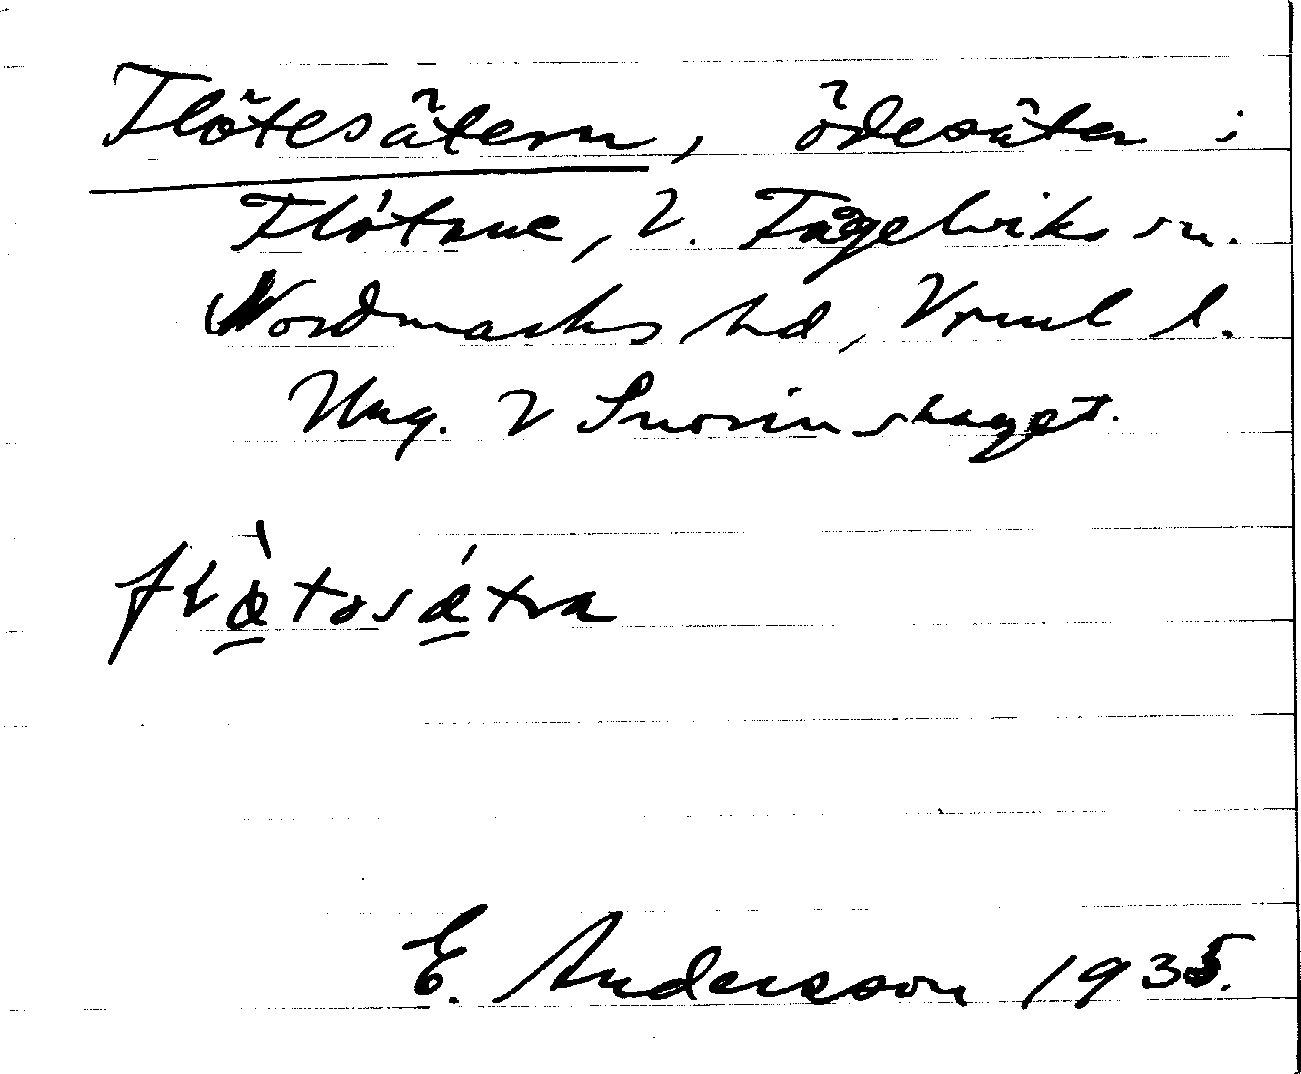 Flötesätern, ödesäter i
Flötane, V. Fågelviks sn.
Nordmarks hd, Vrml l.
Ung. V Snorrinshaget.
flὰtəsátra
E. Andersson 1935.